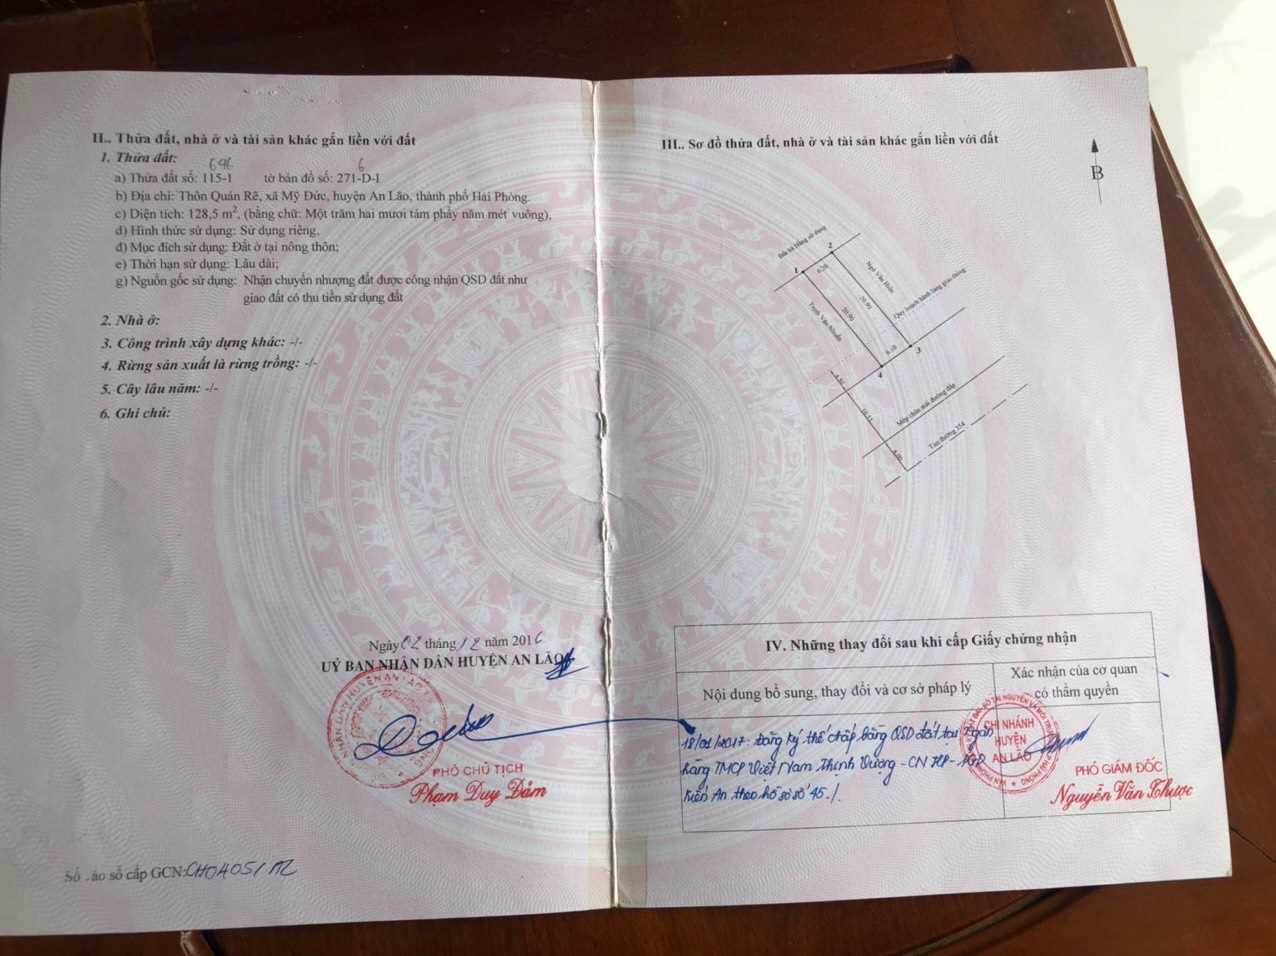 II.. Thửa đất, nhà ở và tài sản khác gắn liền với đất
1. Thửa đất:
696 6
a) Thửa đất số: 115-1 tờ bản đồ số: 271-D-I
b) Địa chỉ: Thôn Quán Rẽ, xã Mỹ Đức, huyện An Lão, thành phố Hải Phòng.
c) Diện tích: 128,5 m², (bằng chữ: Một trăm hai mươi tám phẩy năm mét vuông),
d) Hình thức sử dụng: Sử dụng riêng,
đ) Mục đích sử dụng: Đất ở tại nông thôn;
e) Thời hạn sử dụng: Lâu dài;
g) Nguồn gốc sử dụng: Nhận chuyển nhượng đất được công nhận QSD đất như
giao đất có thu tiền sử dụng đất
2. Nhà ở:
3. Công trình xây dựng khác: -/-
4. Rừng sản xuất là rừng trồng: -/-
5. Cây lâu năm: -/-
6. Ghi chú:
Ngày 02 tháng 12 năm 2016
UỶ BAN NHÂN DÂN HUYỆN AN LÃO
PHÓ CHỦ TỊCH
Phạm Duy Đảm
Số vào sổ cấp GCN: CH04051
III.. Sơ đồ thửa đất, nhà ở và tài sản khác gắn liền với đất
B
1
2
Ngô Văn
Trịnh Văn
20.90
20.90
Quy hoạch hành lang giao thông
3
4
Mép chân mái đường đắp
Tim đường 354
IV. Những thay đổi sau khi cấp Giấy chứng nhận
Nội dung bổ sung, thay đổi và cơ sở pháp lý
Xác nhận của cơ quan
có thẩm quyền
18/01/2017 Đăng ký thế chấp bằng QSD đất tại Ngân
hàng TMCP Việt Nam Thịnh Vượng - CN HP - PGD
Kiến An theo hồ sơ số 45./.
CHI NHÁNH
HUYỆN
AN LÃO
PHÓ GIÁM ĐỐC
Nguyễn Văn Thược